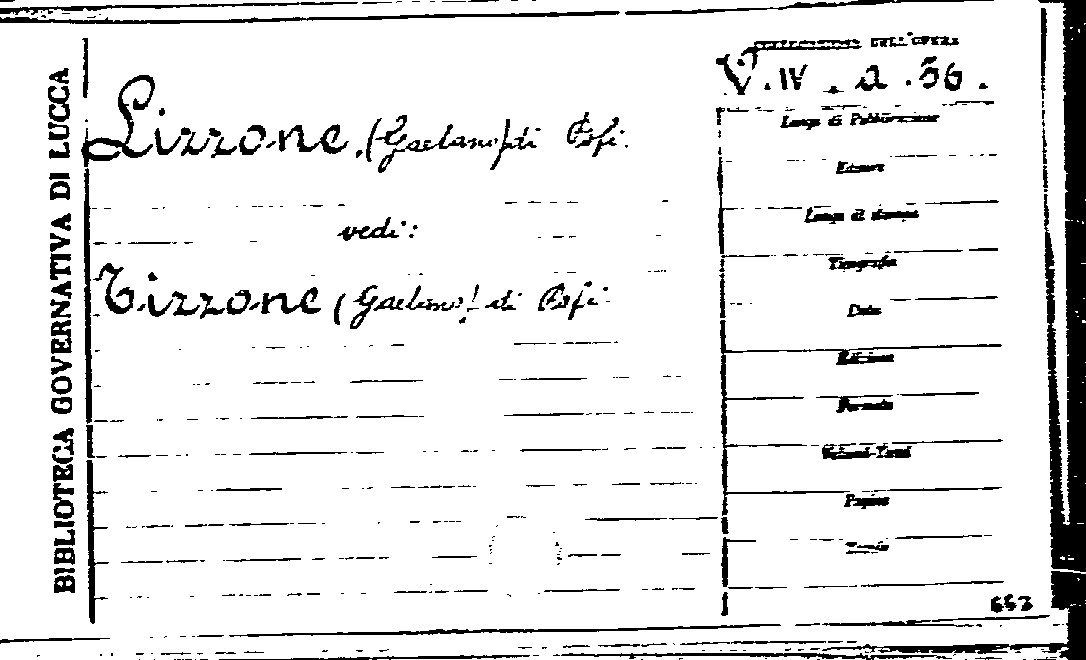 BIBLIOTECA GOVERNATIVA DI LUCCA
Lizzone (Gaetano) di Pofi.
vedi:
Tizzone (Gaetano) di Pofi
DELL'OPERA
V. IV. a. 56.
Luogo di Pubblicazione
Editore
Luogo di stampa
Tipografia
Data
Edizione
Formato
Volumi-Tomi
Pagine